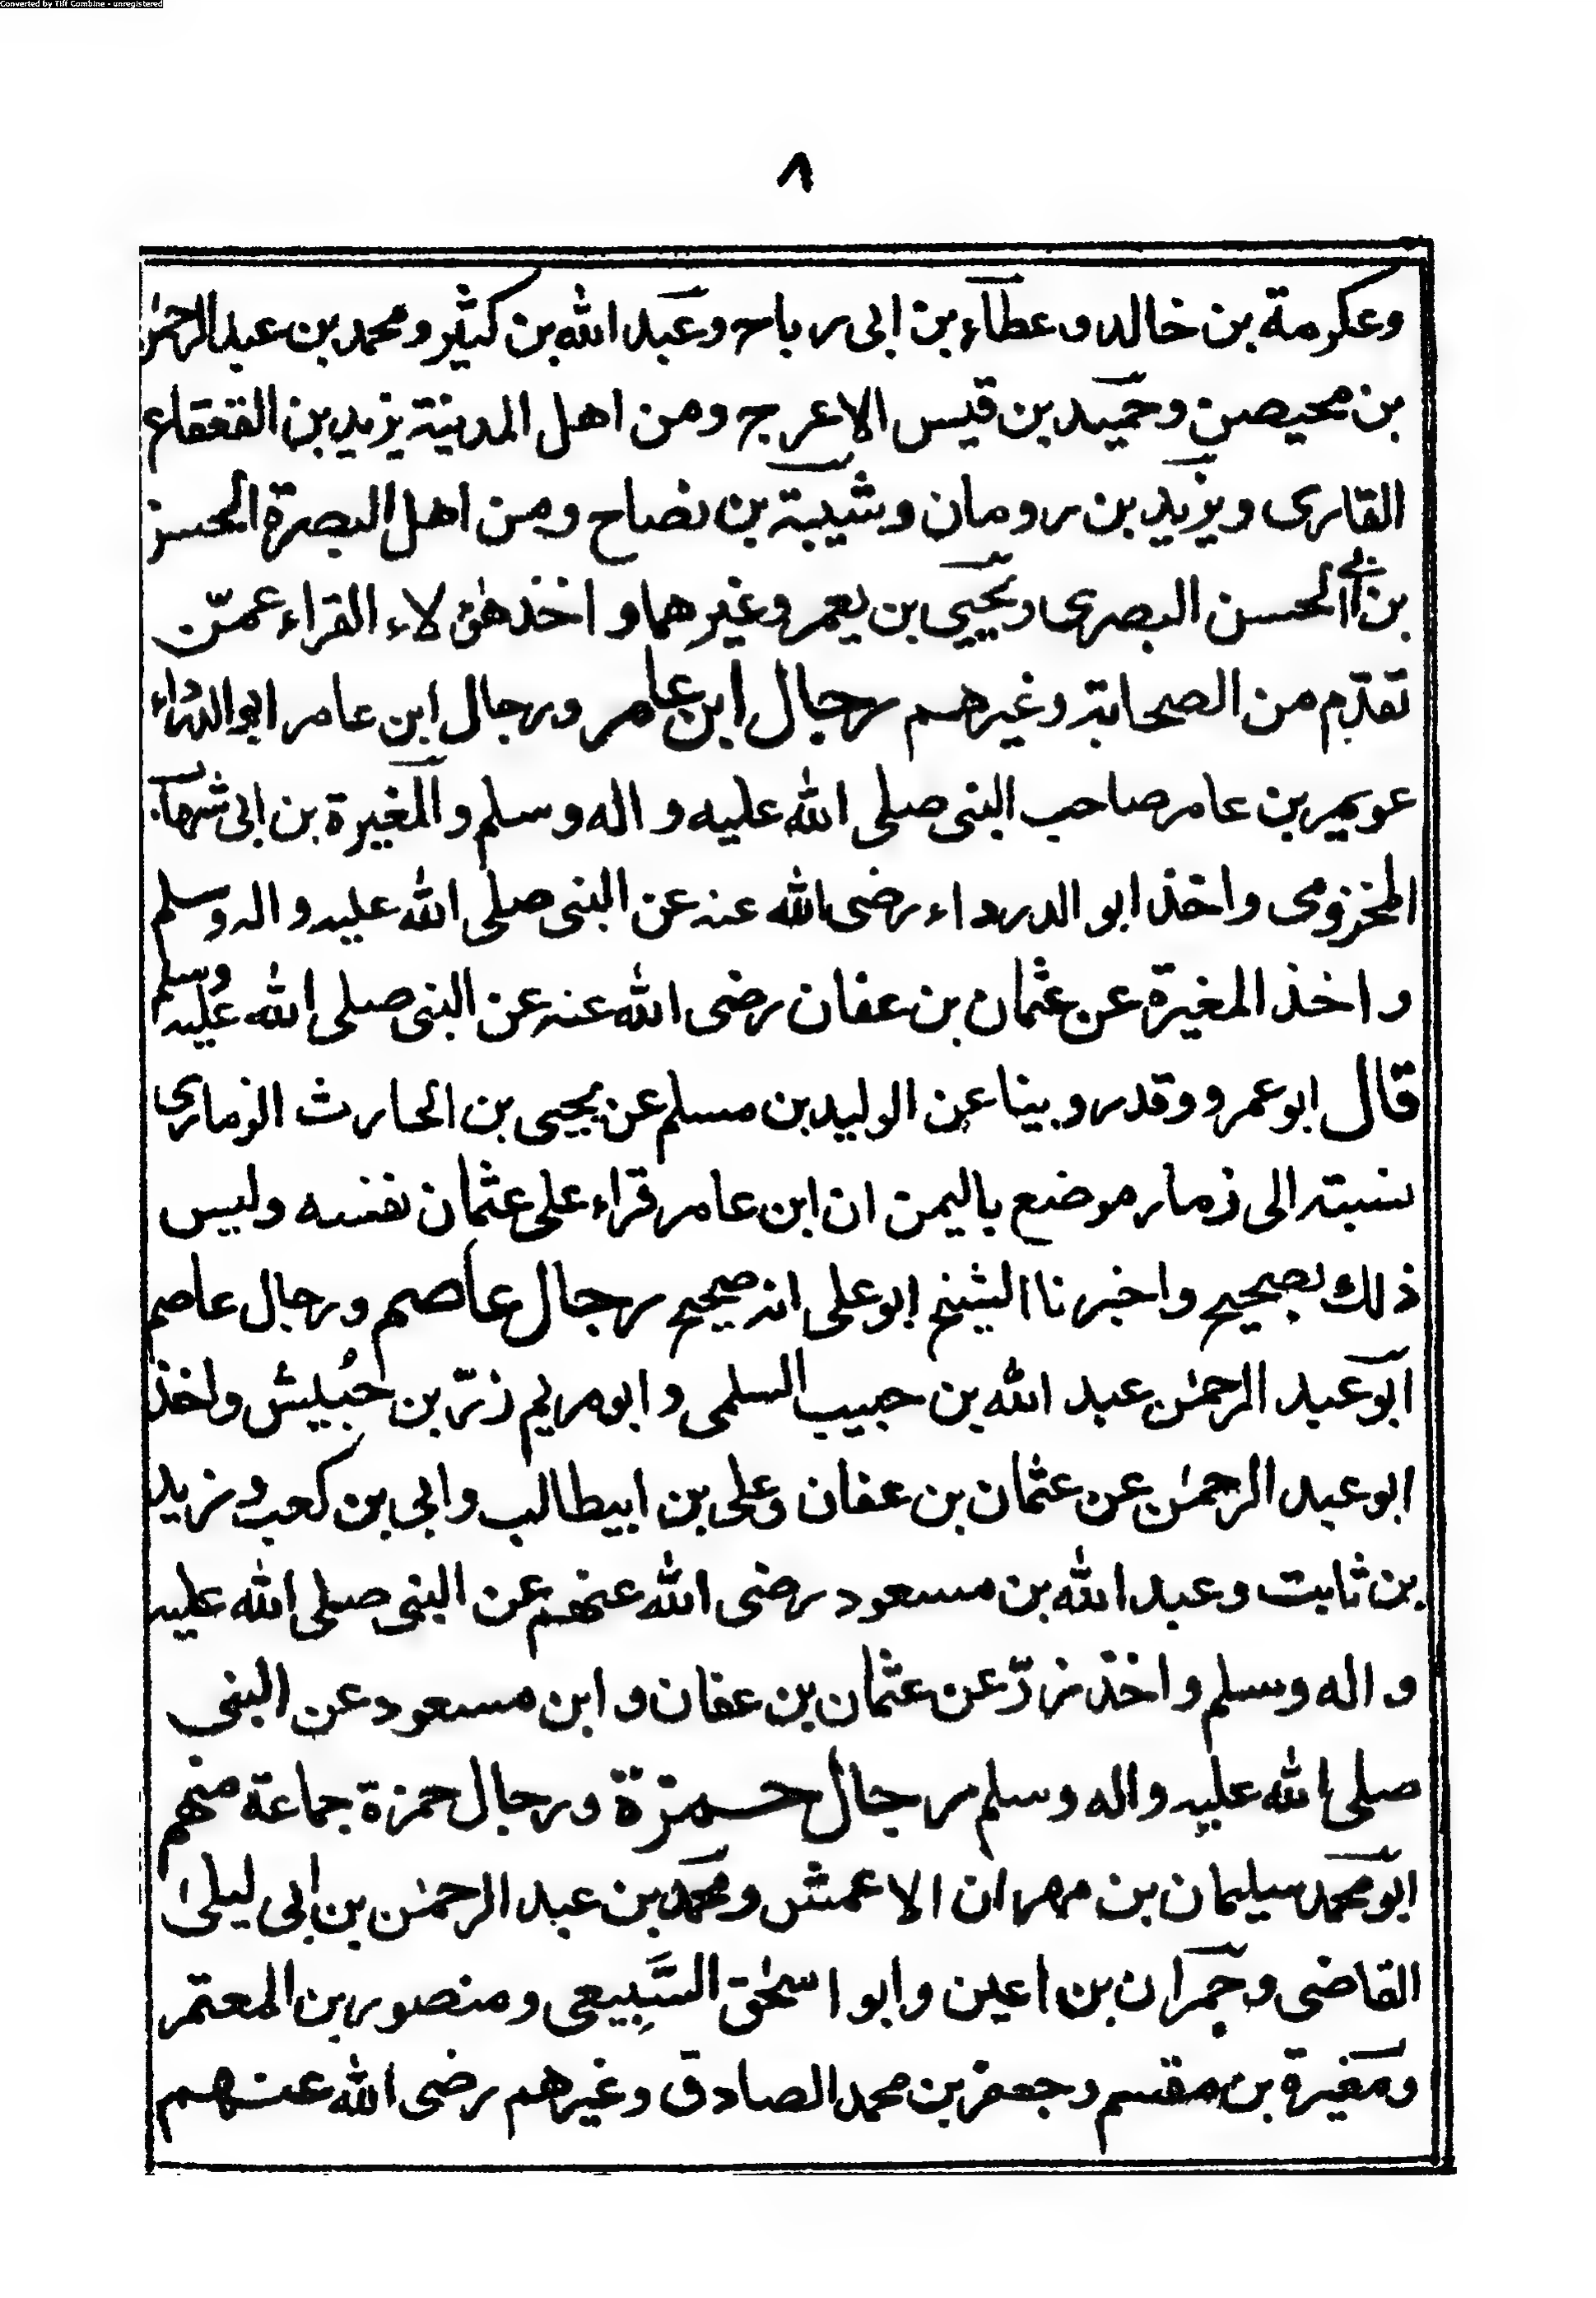 Converted by Tiff Combine - unregistered
٨
وعكرمة بن خالد وعطاء بن ابى رباح وعبد الله بن كثير ومحمد بن عبد الرحمٰن
بن محيصن وحميد بن قيس الاعرج ومن اهل المدينة يزيد بن القعقاع
القارى ويزيد بن رومان وشيبة بن نصاح ومن اهل البصرة الحسن
بن ابى الحسن البصرى ويحيى بن يعمر وغيرهما واخذ هٰؤلاء القراء عمّن
تقدّم من الصحابة وغيرهم رجال ابن عامر ورجال ابن عامر ابو الدرداء
عويمر بن عامر صاحب النبى صلى الله عليه واله وسلم والمغيرة بن ابى شهاب
المخزومى واخذ ابو الدرداء رضى الله عنه عن النبى صلى الله عليه واله وسلم
واخذ المغيرة عن عثمان بن عفان رضى الله عنه عن النبى صلى الله عليه وسلم
قال ابو عمرو وقد روينا عن الوليد بن مسلم عن يحيى بن الحارث الزمارى
نسبته الى زمار موضع باليمن ان ابن عامر قراء على عثمان نفسه وليس
ذلك بصحيح واخبرنا الشيخ ابو على انه صحيح رجال عاصم ورجال عاصم
ابو عبد الرحمٰن عبد الله بن حبيب السلمى وابو مريم زرّ بن حُبيش واخذ
ابو عبد الرحمٰن عن عثمان بن عفان وعلى بن ابيطالب وابى بن كعب وزيد
بن ثابت وعبد الله بن مسعود رضى الله عنهم عن النبى صلى الله عليه
واله وسلم واخذ زرّ عن عثمان بن عفان وابن مسعود عن النبى
صلى الله عليه واله وسلم رجال حمزة ورجال حمزة جماعة منهم
ابو محمد سليمان بن مهران الاعمش ومحمد بن عبد الرحمٰن بن ابى ليلىٰ
القاضى وحمران بن اعين وابو اسحٰق السَّبِيعى ومنصور بن المعتمر
ومغيرة بن مقسم وجعفر بن محمد الصادق وغيرهم رضى الله عنهم